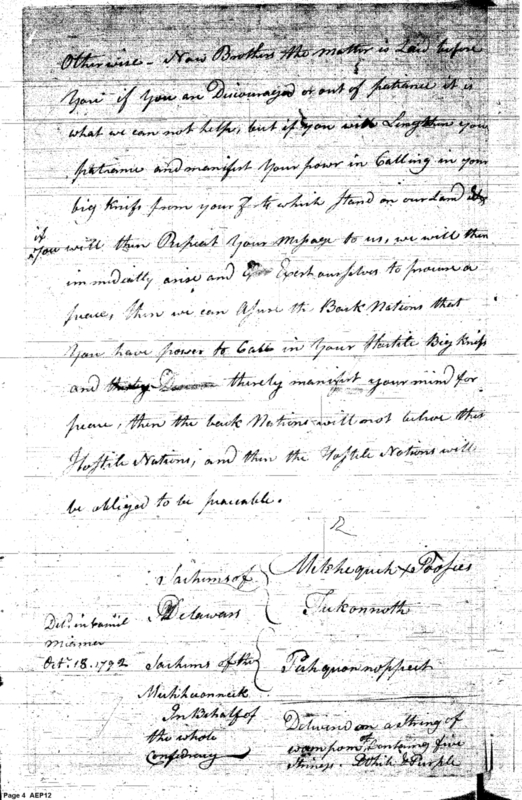 Otherwise – Now Brothers the matter is Laid before
You if You are Discouraged or out of patiance it is
what we can not help, but if you will Lengthen your
patiance and manifest Your power in Calling in your
big Knifs from your Forts which stand on our Land
if you will then Repeat Your Message to us, we will then
immedically arise and Exert ourselves to procure a
peace, then we can Asure the Back Nations that
You have power to Call in Your Hostile Big Knifs
and thereby manifist your mind for
peace, then the back Nations will not beleve the
Hostile Nations, and then the Hostile Nations will
be obliged to be peaceable.
12
Sachims of
Delawars
Poosies
Tukonnoth
Deld. in Council
Miamee
Octr. 18. 1792
Sachims of the
In Behalf of
the whole
Confedracy
Deliverd on a string of
wampom Containing five
Strings. White & Purple
Page 4 AEP12